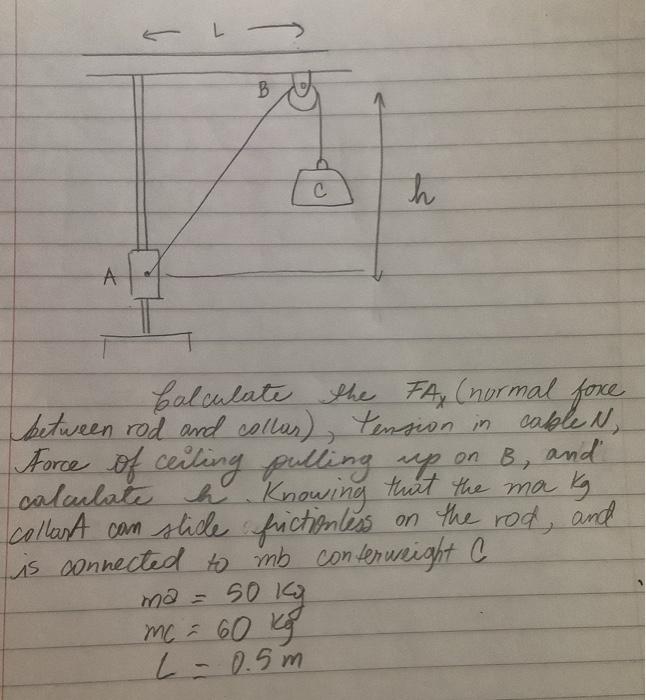 L
B
C
h
A
Calculate the FAx (normal force
between rod and collar), tension in cable N,
Force of ceiling pulling up on B, and
calculate h. Knowing that the ma Kg
collarA can slide frictionless on the rod, and
is connected to mb conterweight C
ma = 50 Kg
mc = 60 Kg
L = 0.5 m